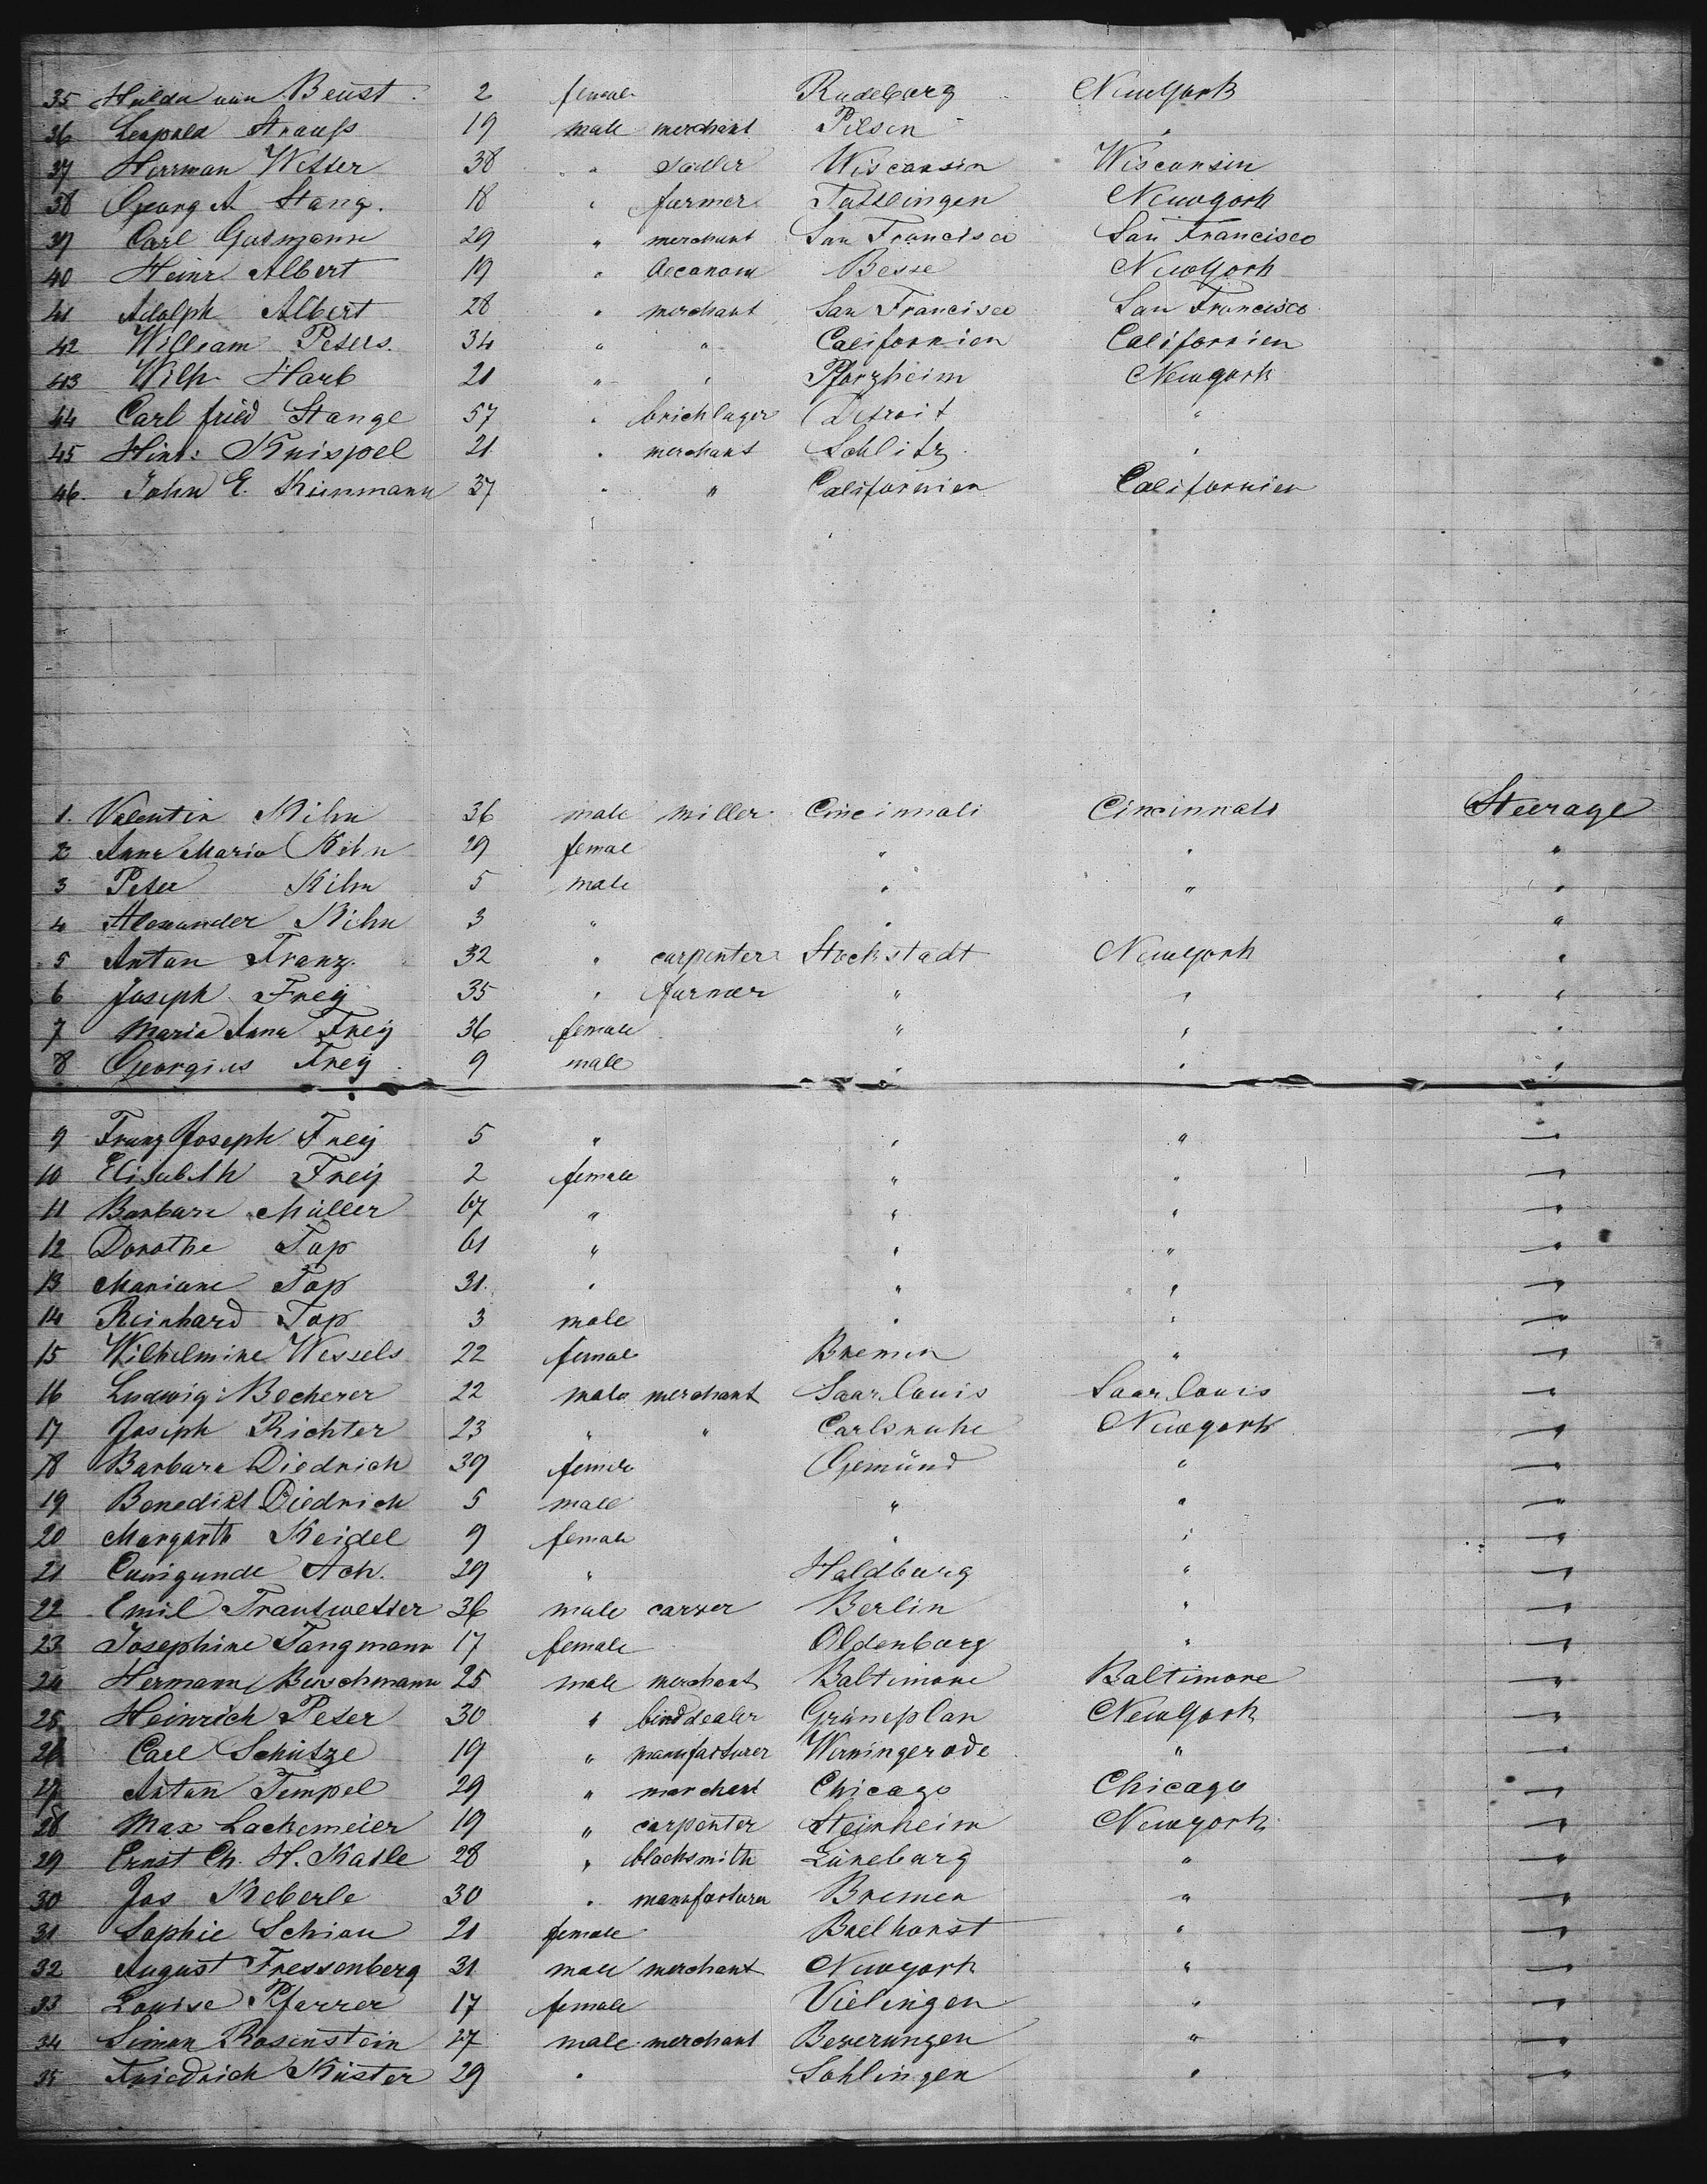 35 Hulda von Beust 2 female Rudeburg NewYork
36 Leopold Strauß 19 male merchant Pilsen "
37 Herrman Wetter 38 " Sadler Wisconsin Wisconsin
38 Georg A Stang. 18 " farmer Tuttlingen Newyork
39 Carl Gutmann 29 " merchant San Francisco San Francisco
40 Heinr Albert 19 " Oeconom Besse NewYork
41 Adolph Albert 28 " merchant San Francisco San Francisco
42 William Peters. 34 " " Californien Californien
43 Wilh. Harb 21 " " Pforzheim Newyork
44 Carl fried Stange 57 " bricklager Detroit "
45 Hinr: Knispel 21 " merchant Schlitz "
46. John E. Künmann 37 " " Californien Californien
1. Valentin Kihn 36 male miller Cincinnati Cincinnati Steerage
2 Anna Maria Kihn 29 femal " " "
3 Peter Kihn 5 male " " "
4 Alexander Kihn 3 " " "
5 Anton Franz. 32 " carpenter Stockstadt Newyork "
6 Joseph Frey 35 " farmer " " "
7 Maria Anna Frey 36 female " " "
8 Georgius Frey 9 male " " "
9 Franz Joseph Frey 5 " " " "
10 Elisabeth Frey 2 female " " "
11 Barbara Müller 67 " " " "
12 Dorothe Top 61 " " " "
13 Mariane Top 31. " " " "
14 Reinhard Top 3 male " " "
15 Wilhelmine Wessels 22 femal Bremen " "
16 Ludwig Becherer 22 male merchant Saarlouis Saarlouis "
17 Joseph Richter 23 " " Carlsruhe Newyork "
18 Barbara Diedrich 39 female Gemünd " "
19 Benedikt Diedrich 5 male " " "
20 Margarth Keidel 9 female " " "
21 Cunigunde Ach. 29 " Haldburg " "
22 Emil Trautwetter 36 male carver Berlin " "
23 Josephine Tangmann 17 female Oldenburg " "
24 Hermann Buschmann 25 male merchant Baltimore Baltimore "
25 Heinrich Peter 30 " birddealer Grüneplan NewYork "
26 Carl Schütze 19 " manufacturer Werningerode " "
27 Anton Tempel 29 " merchent Chicago Chicago "
28 Max Lachemeier 19 " carpenter Steinheim Newyork "
29 Ernst Ch. H. Katle 28 " blacksmith Lüneburg " "
30 Jos Keberle 30 " manufacturer Bremen " "
31 Sophie Schiau 21 female Buelhorst " "
32 August Fressenberg 31 male merchant Newyork " "
33 Louise Pfarrer 17 female Vielingen " "
34 Simon Rosenstein 27 male merchant Beverungen " "
35 Friedrich Küster 29 " Sohlingen " "